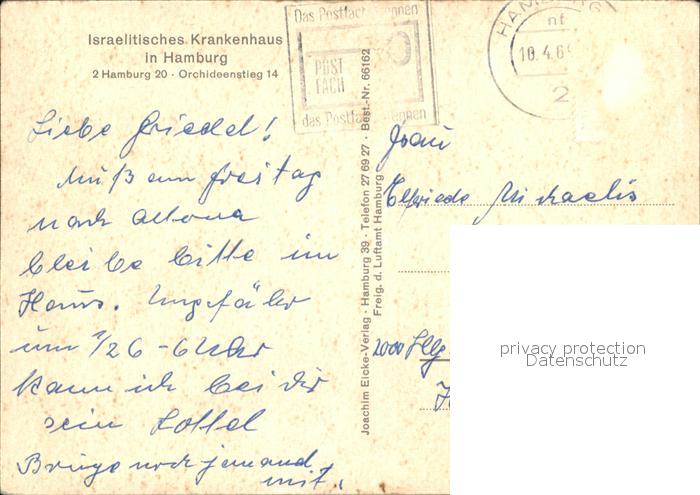 Israelitisches Krankenhaus
in Hamburg
2 Hamburg 20 · Orchideenstieg 14
Liebe Friedel!
Muß am Freitag
nach Altona
bleibe bitte im
Haus. Ungefähr
um 1/2 6 - 6 Uhr
kann ich bei dir
sein Lottel
Bringe noch jemand
mit.
Joachim Eicke-Verlag · Hamburg 39 · Telefon 27 69 27 · Best.-Nr. 66162
Freig. d. Luftamt Hamburg
Das Postfach
POST
FACH
das Postfach
HAMBURG
nf
10.4.6
2
Frau
Elfriede Michaelis
2000 Hbg
privacy protection
Datenschutz